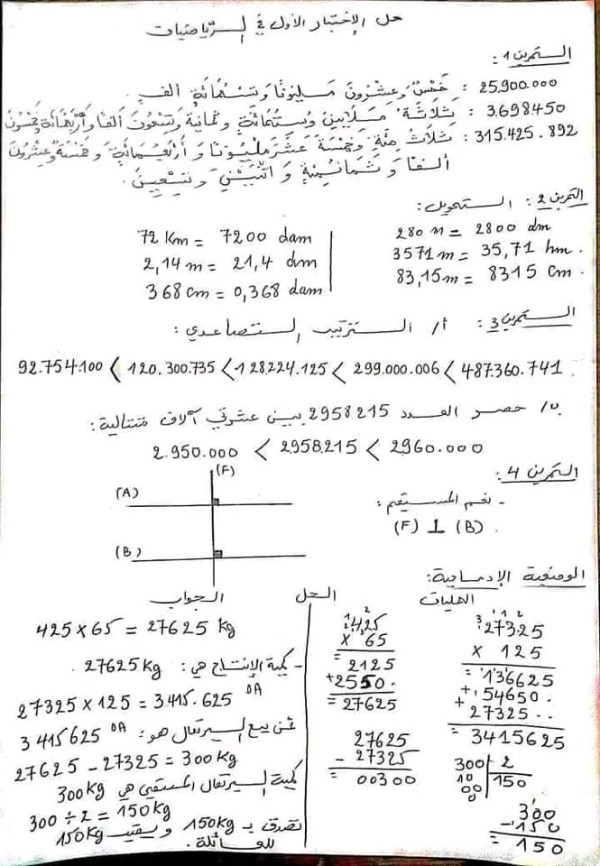 حل الإختبار الأول في الرياضيات
التمرين 1:
25.900.000 : خمس وعشرون مليونا وتسعمائة ألف.
3.698450 : ثلاثة ملايين وستمائة وثمانية وتسعون ألفا وأربعمائة وخمسون
315.425.892 : ثلاث مئة وخمسة عشر مليونا و أربعمائة و خمسة وعشرون
ألفا و ثمانمئة و اثنين و تسعين.
التمرين 2: التحويل:
280 m = 2800 dm
3571 m = 35,71 hm.
83,15 m = 8315 cm.
72 Km = 7200 dam
2,14 m = 21,4 dm
368 cm = 0,368 dam
التمرين 3: أ/ الترتيب التصاعدي:
92.754.100 < 120.300.735 < 128.224.125 < 299.000.006 < 487.360.741.
ب/ حصر العدد 2958215 بين عشرتي آلاف متتالية:
2.950.000 < 2958.215 < 2960.000
التمرين 4:
- نعم المستقيم:
(F) ⊥ (B).
(F)
(A)
(B)
الوضعية الإدماجية:
العمليات
27325
× 125
= 136625
+ 54650.
+ 27325..
= 3415625
300 2
10 150
00
300
- 150
= 150
الحل
425
× 65
= 2125
+2550.
= 27625
27625
- 27325
= 00300
الجواب
425 × 65 = 27625 kg
- كمية الإنتاج هي: 27625 kg.
27325 × 125 = 3415.625 DA
ثمن بيع البرتقال هو: 3415625 DA.
27625 - 27325 = 300 kg
كمية البرتقال المتبقي هي 300 kg
300 ÷ 2 = 150 kg
تصدق بـ 150 kg و بقيت 150 kg
للعائلة.